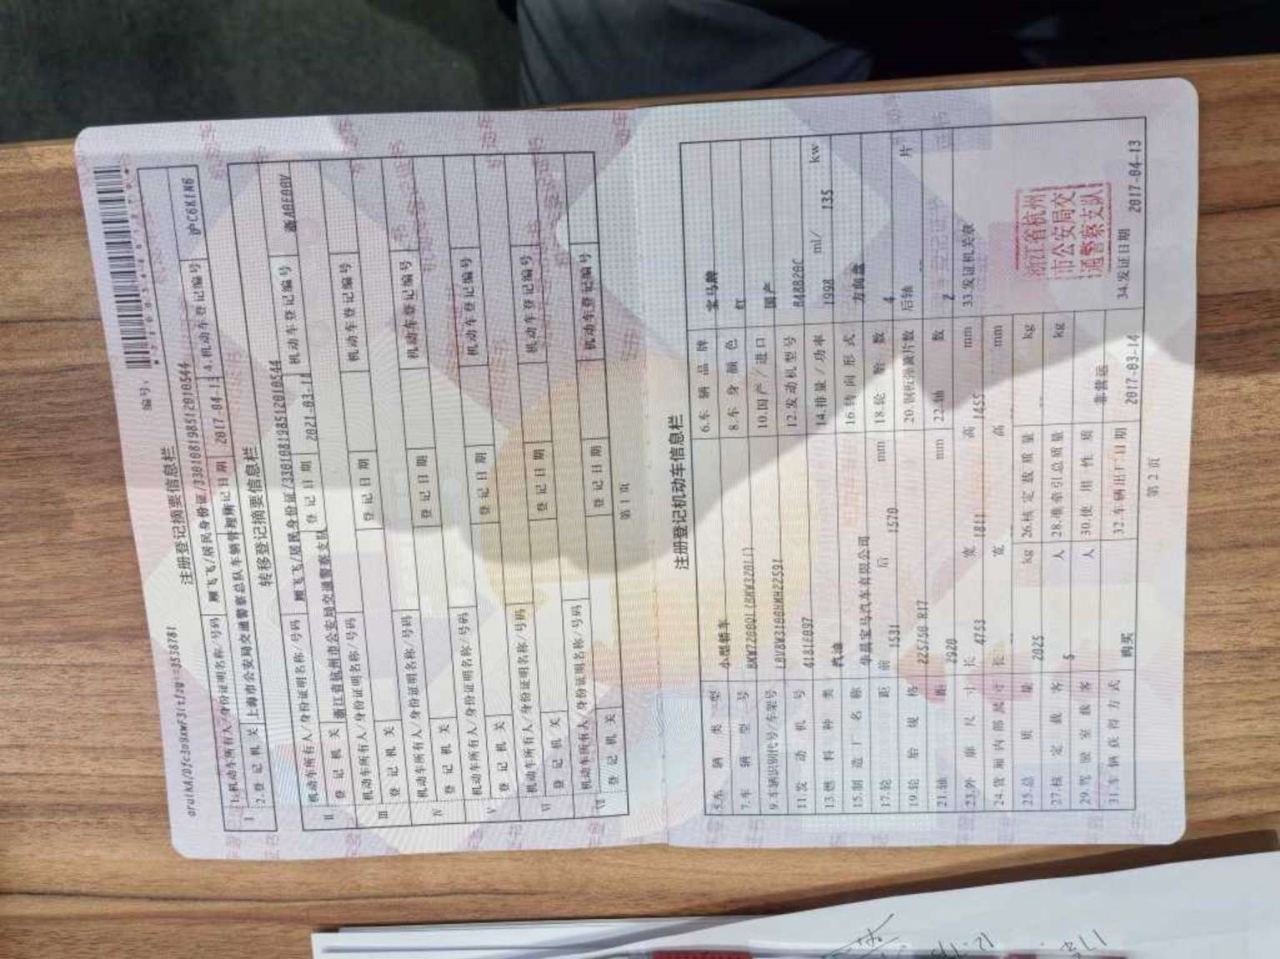 编号:
oru1kA/Dfc3o9xwF3ItJzq=3538781
注册登记摘要信息栏
I 1.机动车所有人/身份证明名称/号码 顾飞飞/居民身份证/330108198512010544
2.登记机关 上海市公安局交通警察总队车辆管理所 3.登记日期 2017-04-13 4.机动车登记编号 沪C6K1N6
转移登记摘要信息栏
II 机动车所有人/身份证明名称/号码 顾飞飞/居民身份证/330108198512010544
登记机关 浙江省杭州市公安局交通警察支队 登记日期 2021-03-1 机动车登记编号
III 机动车所有人/身份证明名称/号码
登记机关 登记日期 机动车登记编号
IV 机动车所有人/身份证明名称/号码
登记机关 登记日期 机动车登记编号
V 机动车所有人/身份证明名称/号码
登记机关 登记日期 机动车登记编号
VI 机动车所有人/身份证明名称/号码
登记机关 登记日期 机动车登记编号
VII 机动车所有人/身份证明名称/号码
登记机关 登记日期 机动车登记编号
第 1 页
注册登记机动车信息栏
5.车辆类型 小型轿车 6.车辆品牌 宝马牌
7.车辆型号 8.车身颜色 红
9.车辆识别代号/车架号 10.国产/进口 国产
11.发动机号 12.发动机型号 B48B20C
13.燃料种类 汽油 14.排量/功率 1998 ml/ 135 kw
15.制造厂名称 华晨宝马汽车有限公司 16.转向形式 方向盘
17.轮距 前 1531 后 1570 mm 18.轮胎数 4
19.轮胎规格 225/50 R17 20.钢板弹簧片数 后轴 片
21.轴距 2920 mm 22.轴数 2
23.外廓尺寸 长 4753 宽 1811 高 1455 mm 33.发证机关章
24.货厢内部尺寸 长 宽 高 mm
25.总质量 2025 kg 26.核定载质量 kg
27.核定载客 5 人 28.准牵引总质量 kg
29.驾驶室载客 人 30.使用性质 非营运
31.车辆获得方式 购买 32.车辆出厂日期 2017-03-14 34.发证日期 2017-04-13
浙江省杭州
市公安局交
通警察支队
第 2 页